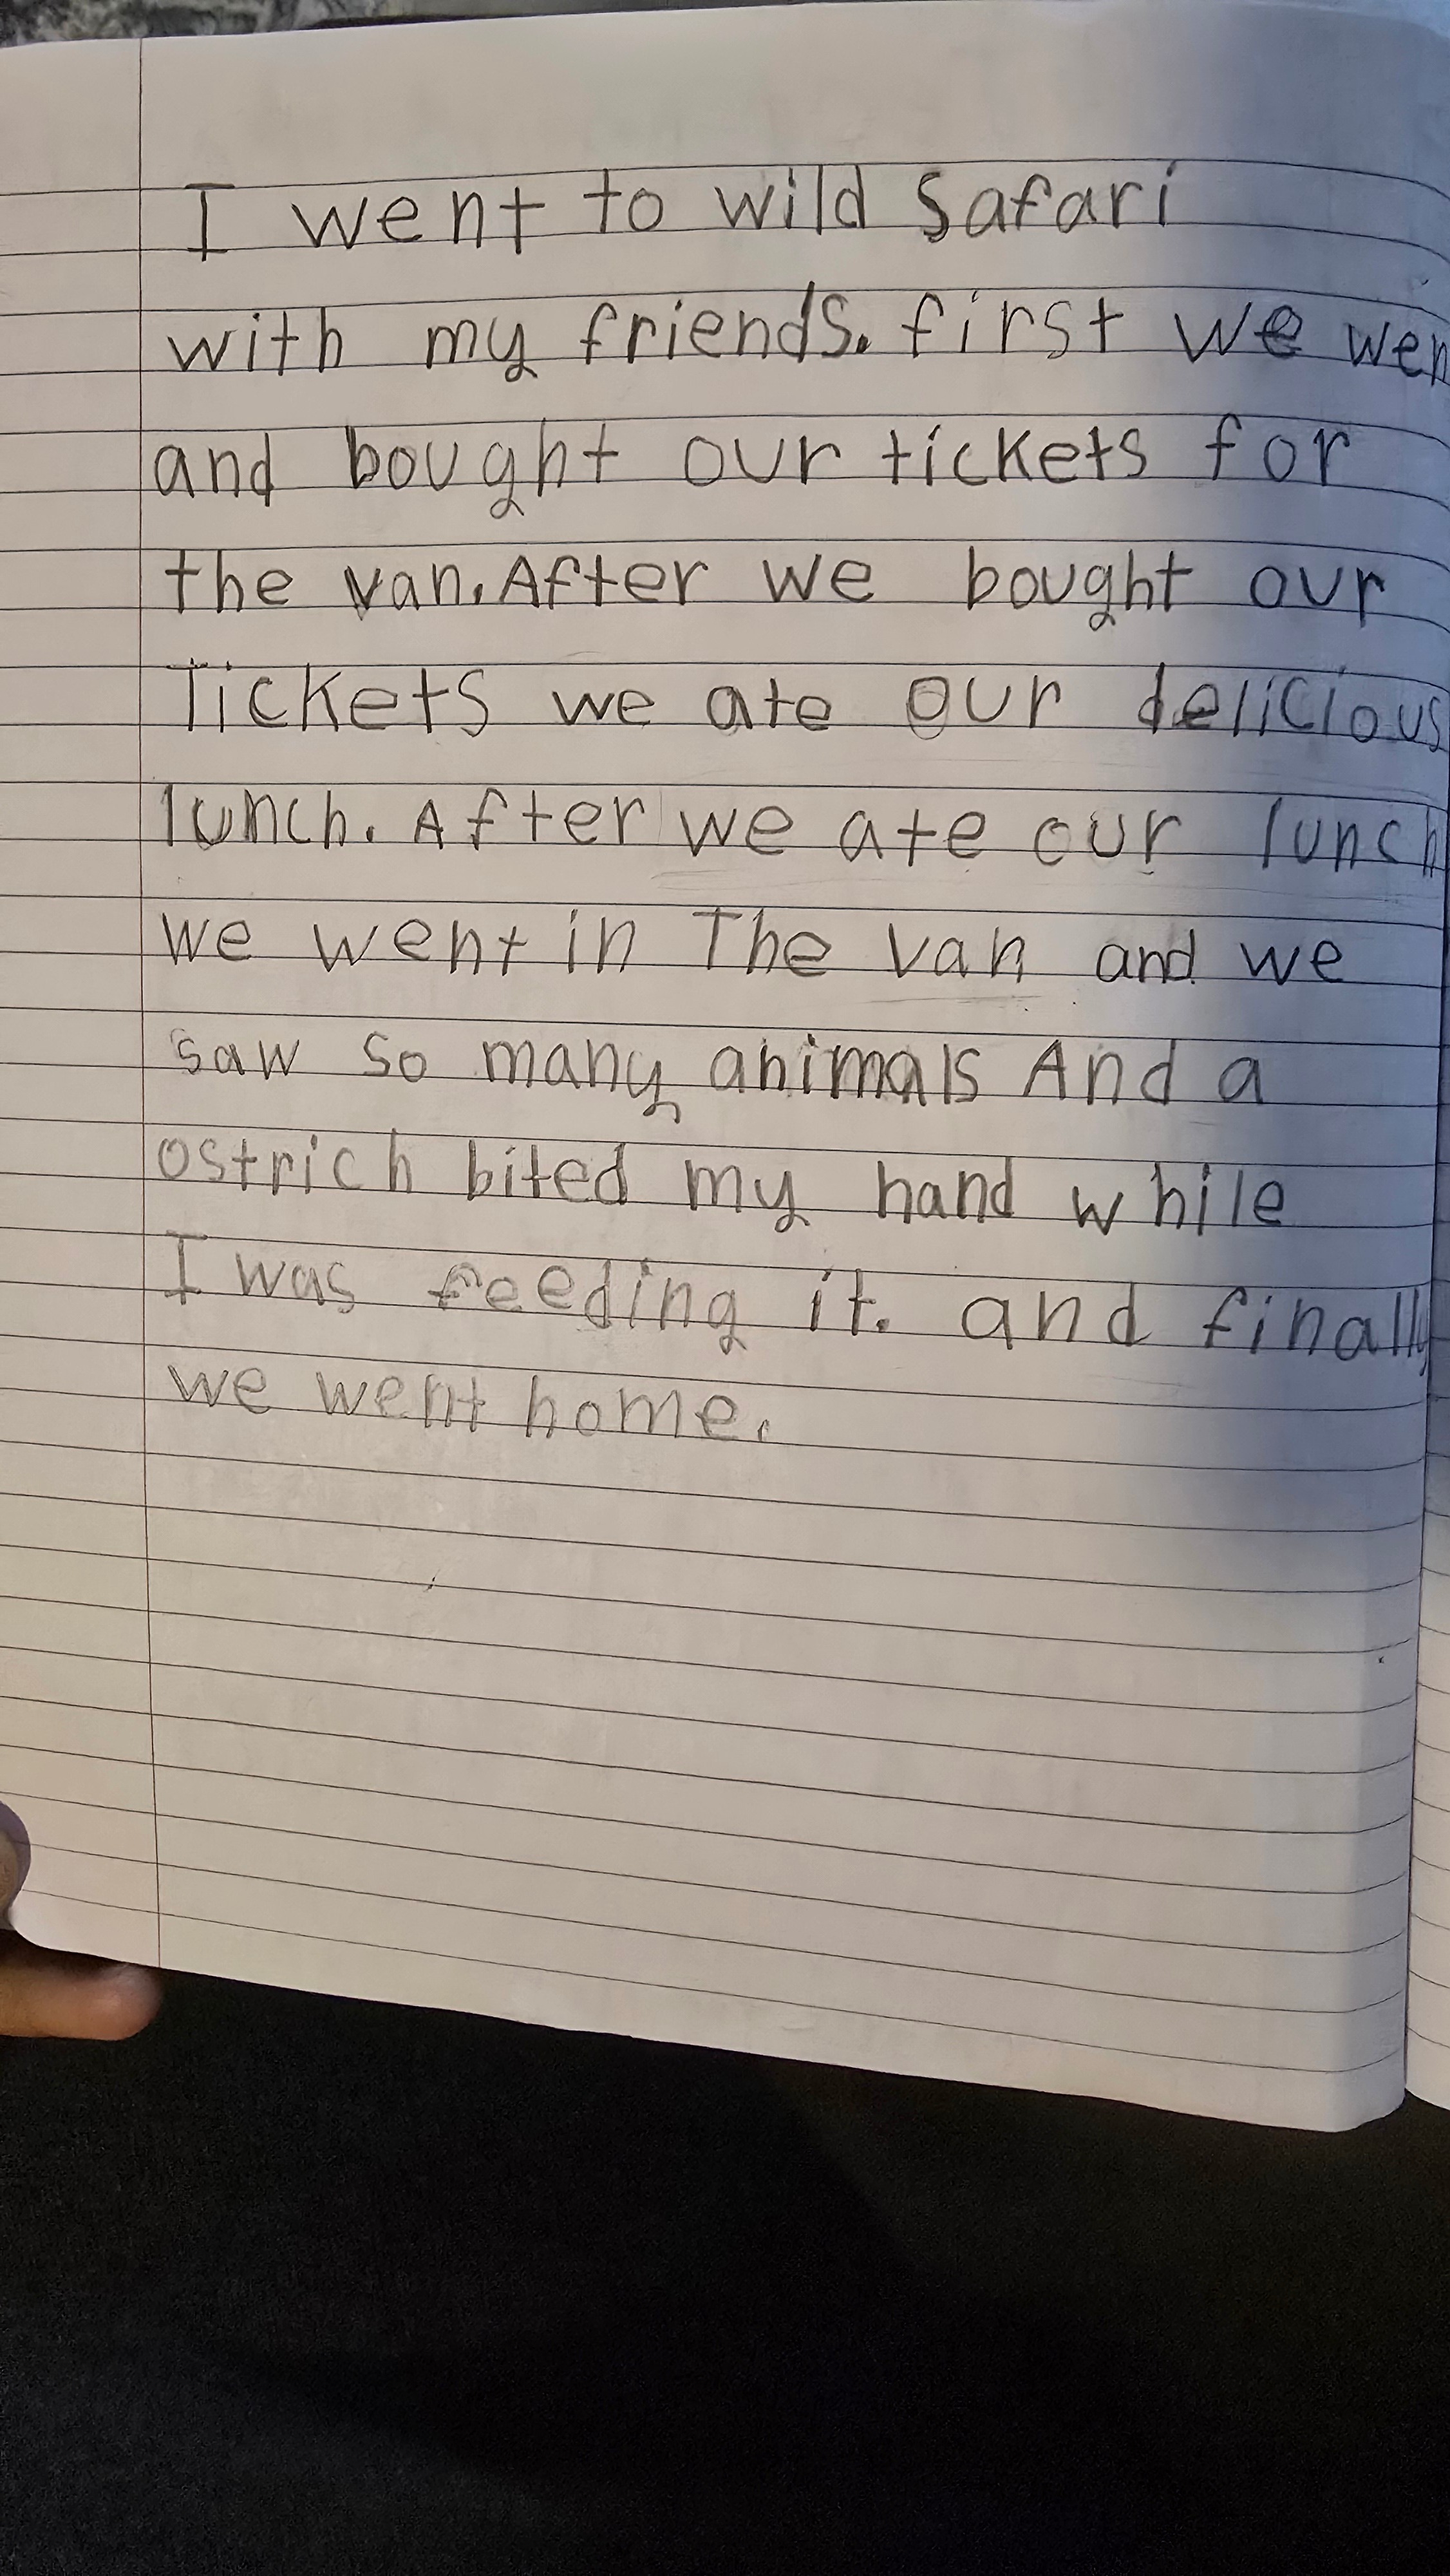 I went to wild safari
with my friends. first we wen
and bought our tickets for
the van. After we bought our
Tickets we ate our delicious
lunch. After we ate our lunch
we went in The van and we
saw so many animals And a
ostrich bited my hand while
I was feeding it. and finally
we went home.